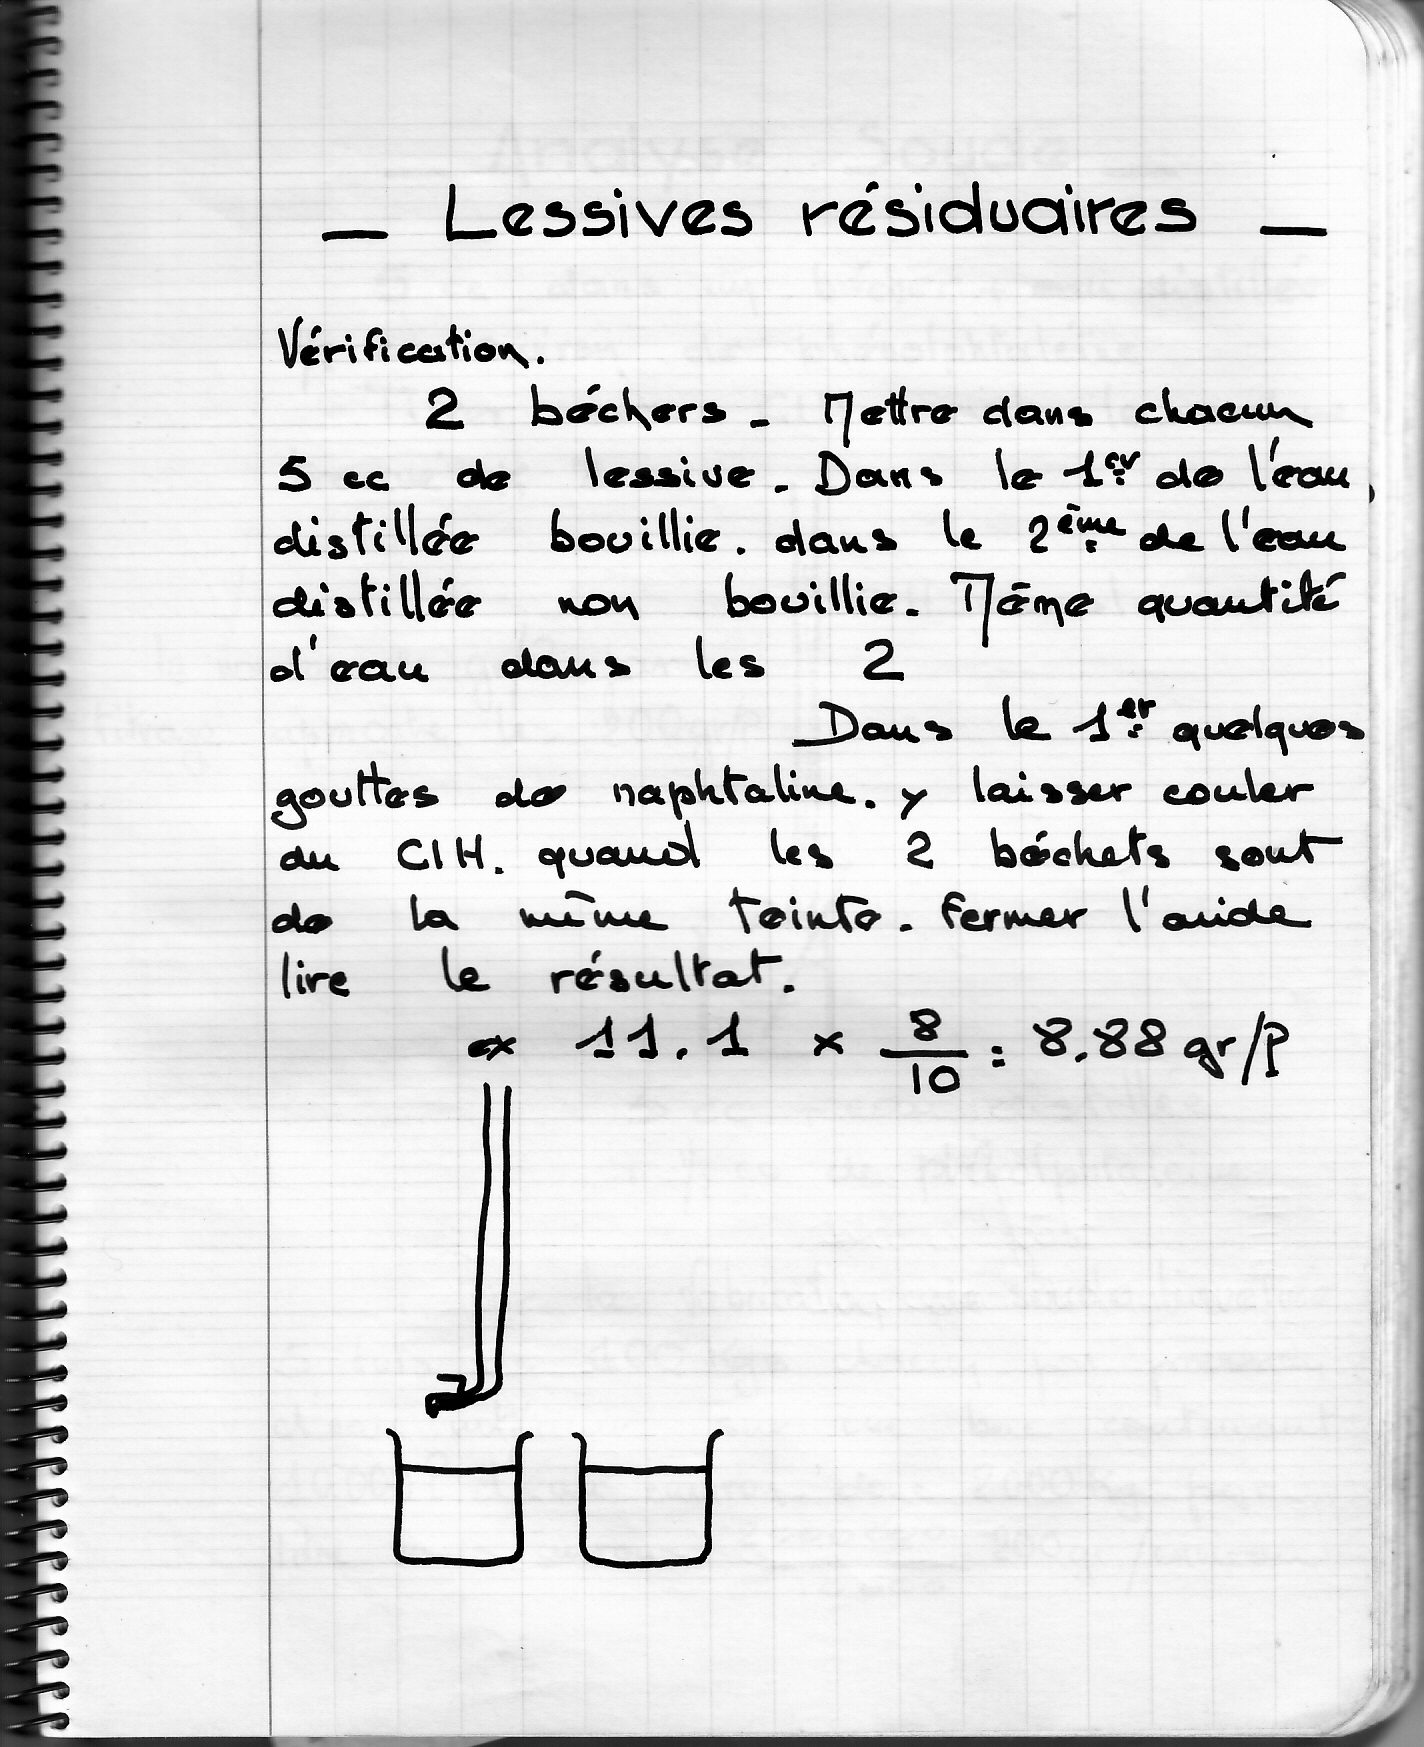 _ Lessives résiduaires _
Vérification.
2 béchers - Mettre dans chacun
5 cc de lessive. Dans le 1er de l'eau,
distillée bouillie. dans le 2ème de l'eau
distillée non bouillie. Même quantité
d'eau dans les 2
Dans le 1er quelques
gouttes de naphtaline. y laisser couler
du ClH. quand les 2 béchets sont
de la même teinte. fermer l'acide
lire le résultat.
ex 11.1 x 8/10 = 8.88 gr/l